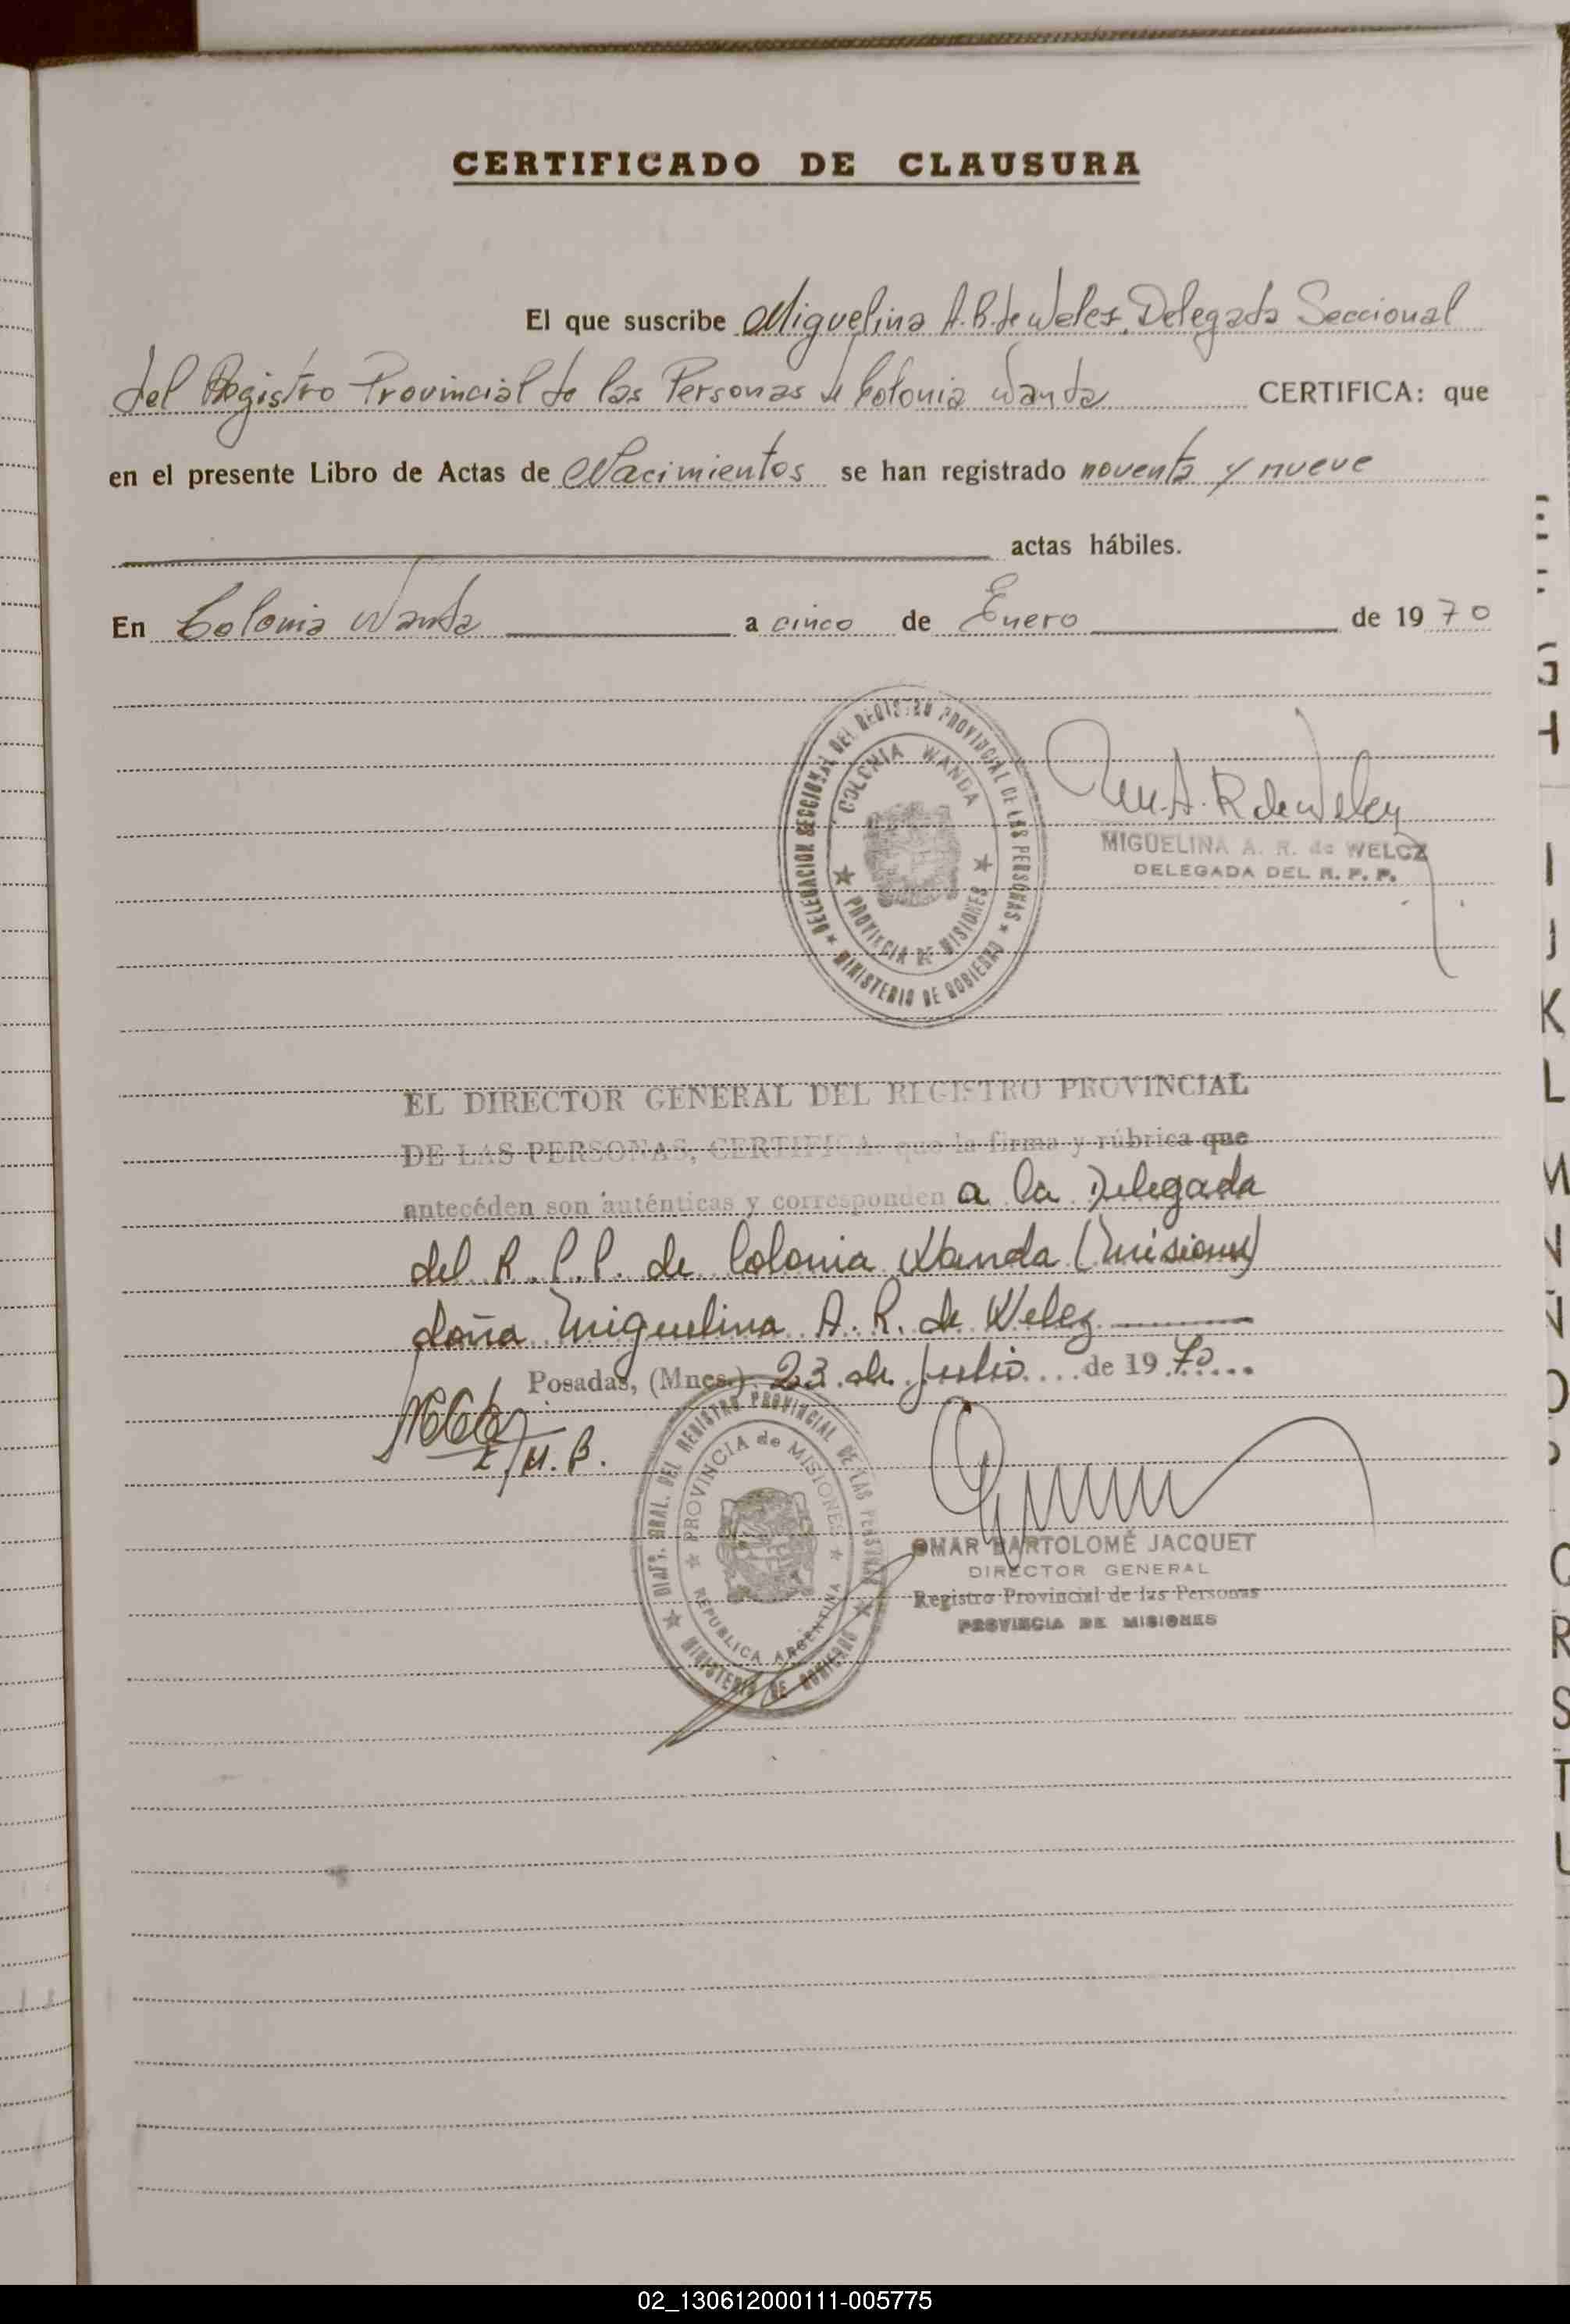 CERTIFICADO DE CLAUSURA
El que suscribe Miguelina A. R. de Welcz, Delegada Seccional
del Registro Provincial de las Personas de Colonia Wanda CERTIFICA: que
en el presente Libro de Actas de Nacimientos se han registrado noventa y nueve
actas hábiles.
En Colonia Wanda a cinco de Enero de 1970
DELEGACION SECCIONAL DEL REGISTRO PROVINCIAL DE LAS PERSONAS
COLONIA WANDA
PROVINCIA DE MISIONES
MINISTERIO DE GOBIERNO
M. A. R de Welcz
MIGUELINA A. R. de WELCZ
DELEGADA DEL R. P. P.
EL DIRECTOR GENERAL DEL REGISTRO PROVINCIAL
DE LAS PERSONAS, CERTIFICA: que la firma y rúbrica que
antecéden son auténticas y corresponden a la Delegada
del R. P. P. de Colonia Wanda (Misiones)
doña Miguelina A. R. de Welcz
Posadas, (Mnes.) 23 de julio de 1970
M. B.
DIREC. GRAL. DEL REGISTRO PROVINCIAL DE LAS PERSONAS
PROVINCIA de MISIONES
REPUBLICA ARGENTINA
MINISTERIO DE GOBIERNO
OMAR BARTOLOMÉ JACQUET
DIRECTOR GENERAL
Registro Provincial de las Personas
PROVINCIA DE MISIONES
I
J
K
L
M
N
Ñ
O
P
Q
R
S
T
U
02_130612000111-005775